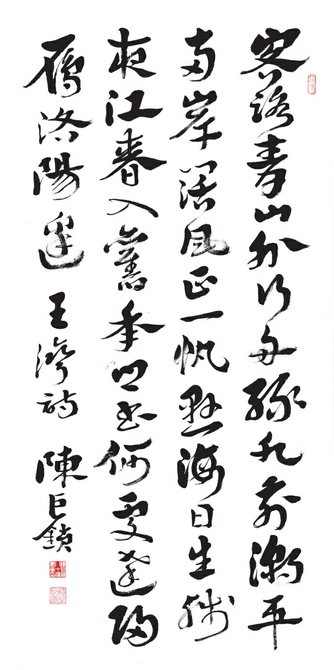 客路青山外行舟綠水前潮平
兩岸闊風正一帆懸海日生殘
夜江春入舊年鄉書何處達歸
雁洛陽邊 王灣詩 陳巨鎖